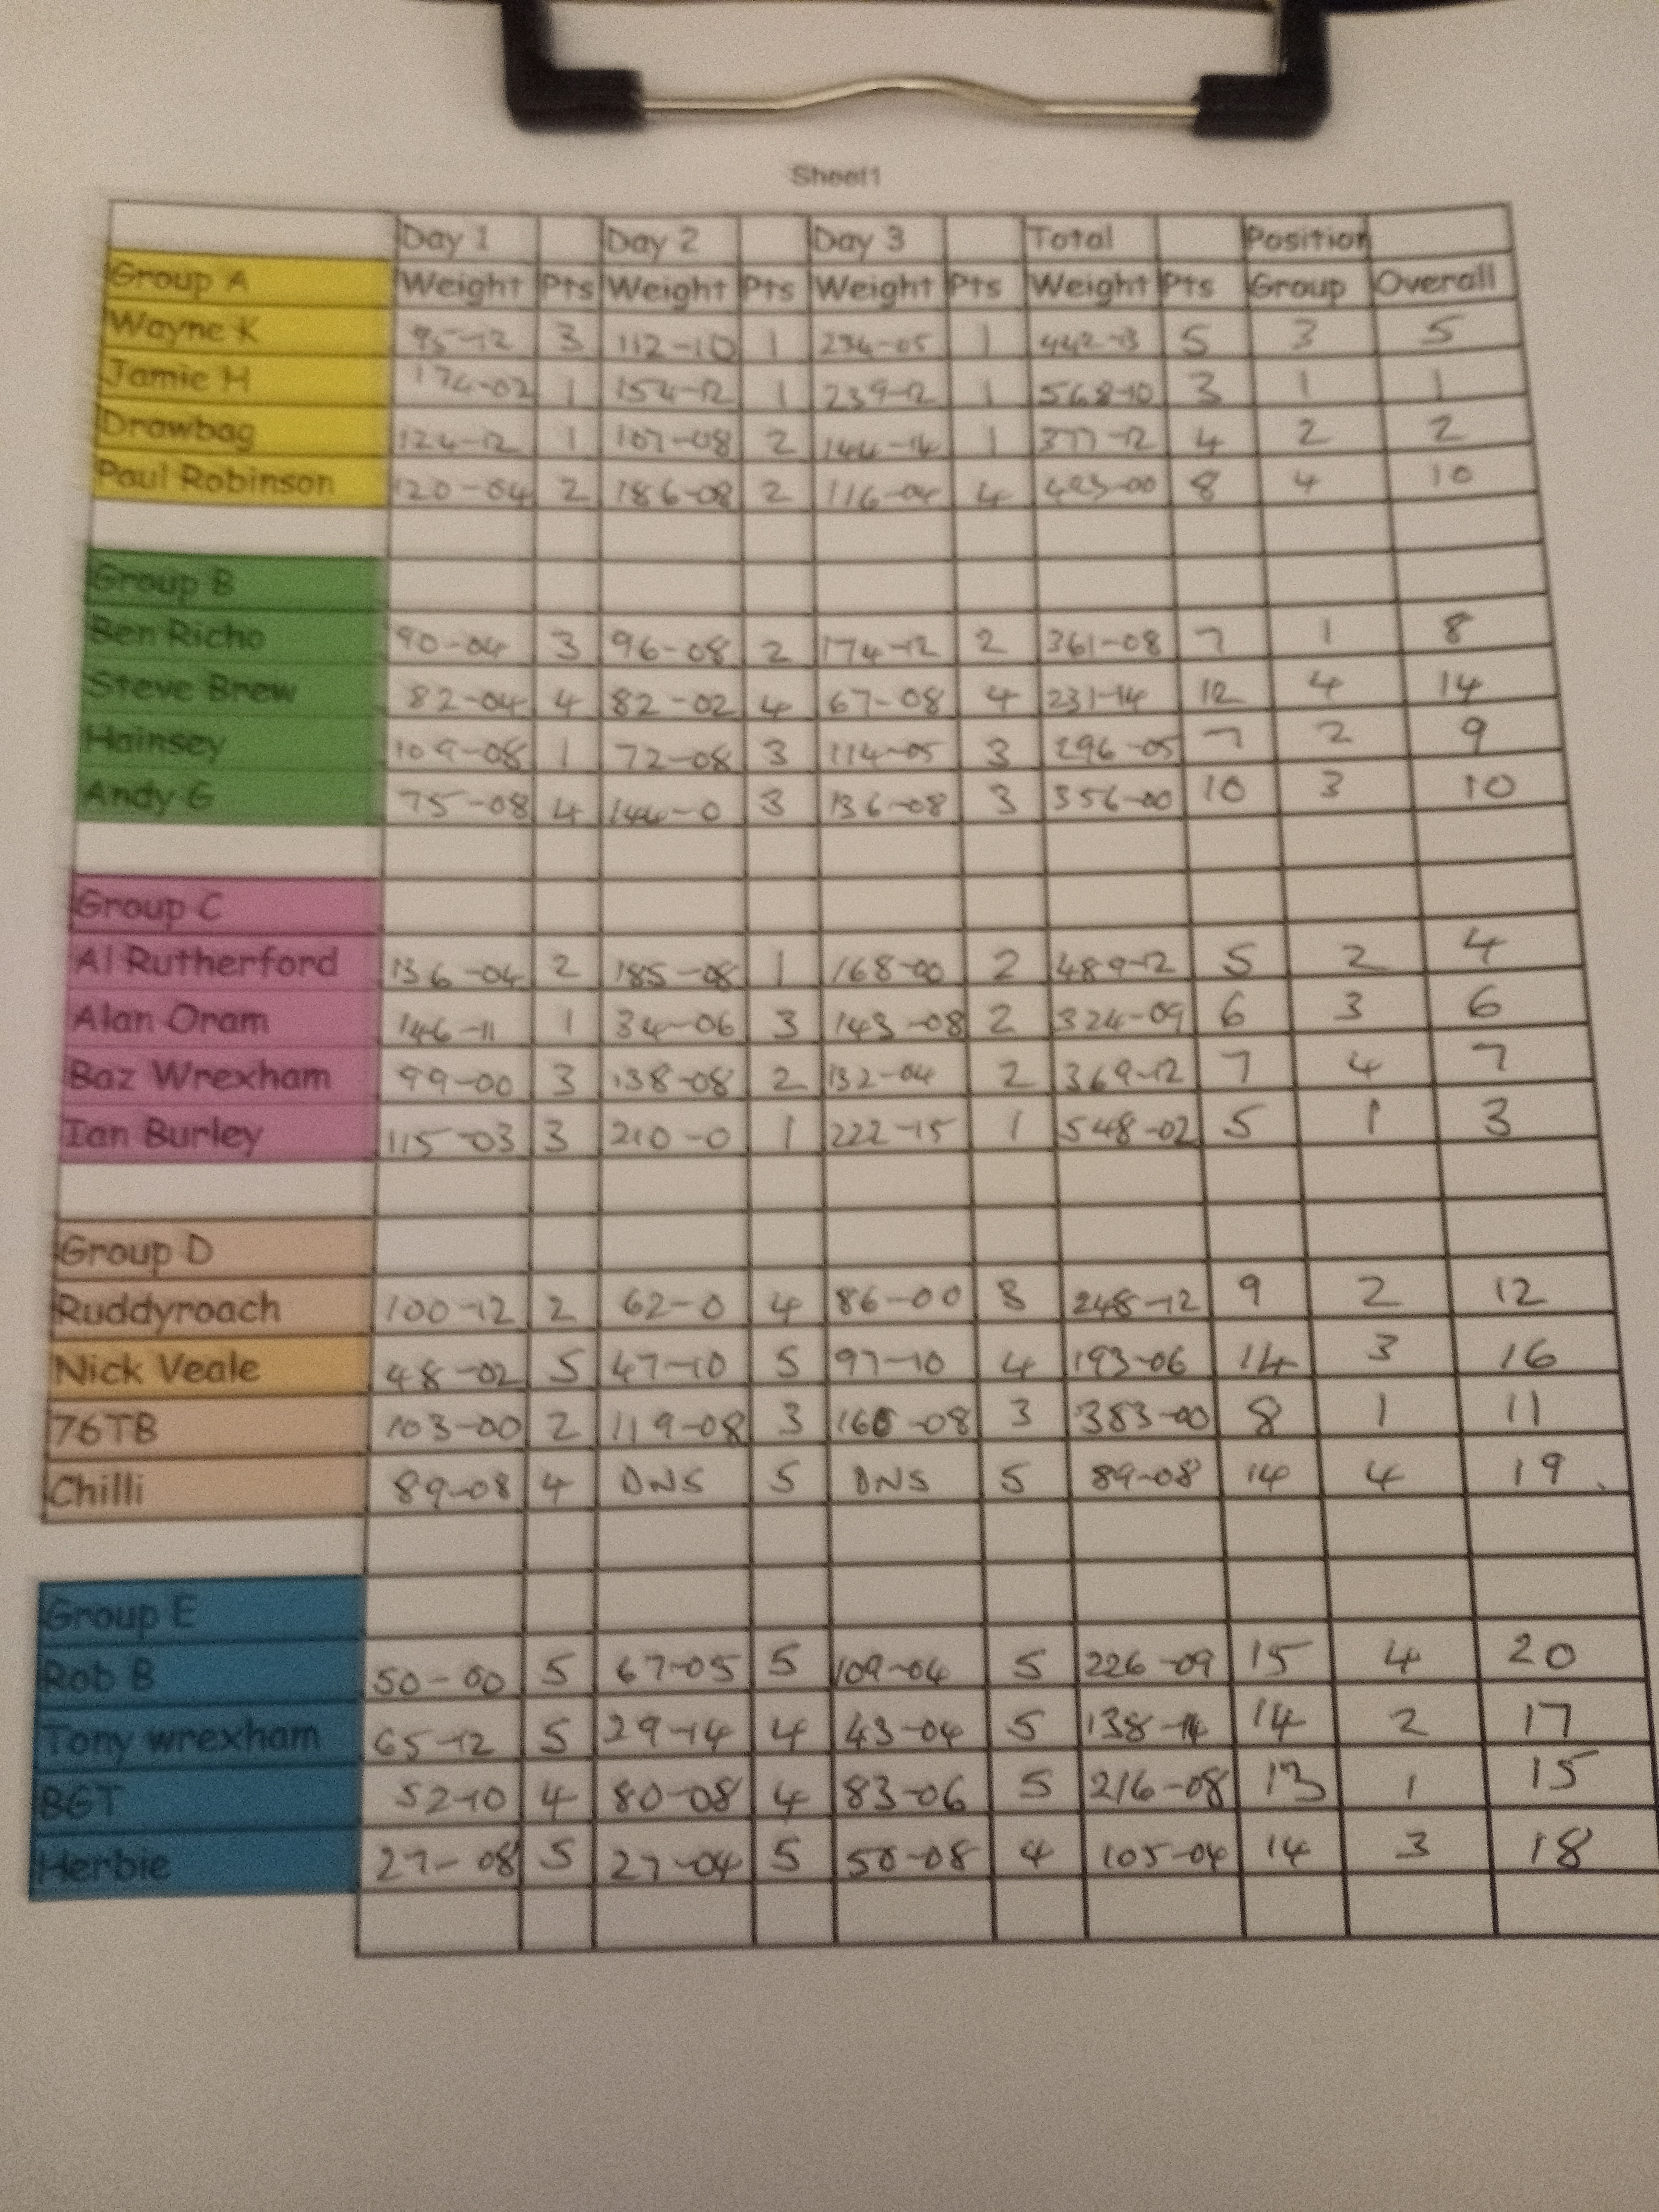 Sheet1
Day 1 Day 2 Day 3 Total Position
Group A Weight Pts Weight Pts Weight Pts Weight Pts Group Overall
Wayne K 95-12 3 112-10 1 234-05 1 442-13 5 3 5
Jamie H 174-02 1 154-12 1 239-12 1 568-10 3 1 1
Drawbag 124-12 1 107-08 2 144-14 1 377-12 4 2 2
Paul Robinson 120-04 2 186-08 2 116-04 4 423-00 8 4 10
Group B
Ben Richo 90-04 3 96-08 2 174-12 2 361-08 7 1 8
Steve Brew 82-04 4 82-02 4 67-08 4 231-14 12 4 14
Hainsey 109-08 1 72-08 3 114-05 3 296-05 7 2 9
Andy G 75-08 4 144-0 3 136-08 3 356-00 10 3 10
Group C
Al Rutherford 136-04 2 185-08 1 168-00 2 489-12 5 2 4
Alan Oram 146-11 1 34-06 3 143-08 2 324-09 6 3 6
Baz Wrexham 99-00 3 138-08 2 132-04 2 369-12 7 4 7
Ian Burley 115-03 3 210-0 1 222-15 1 548-02 5 1 3
Group D
Ruddyroach 100-12 2 62-0 4 86-00 3 248-12 9 2 12
Nick Veale 48-02 5 47-10 5 97-10 4 193-06 14 3 16
76TB 103-00 2 119-08 3 160-08 3 383-00 8 1 11
Chilli 89-08 4 DNS 5 DNS 5 89-08 14 4 19
Group E
Rob B 50-00 5 67-05 5 109-04 5 226-09 15 4 20
Tony wrexham 65-12 5 29-14 4 43-04 5 138-14 14 2 17
BGT 52-10 4 80-08 4 83-06 5 216-08 13 1 15
Herbie 27-08 5 27-04 5 50-08 4 105-04 14 3 18